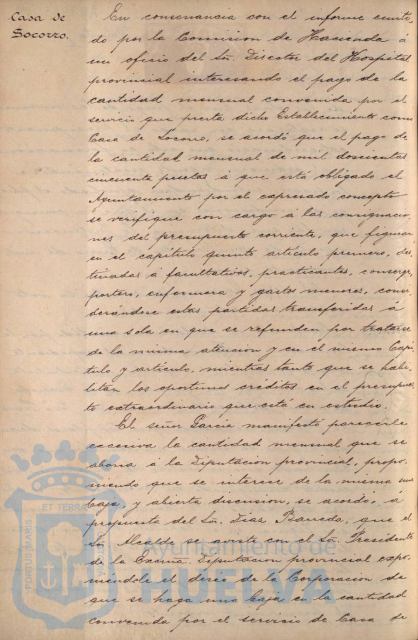 Casa de
Socorro.
En consonancia con el informe emiti-
do por la Comision de Hacienda á
un oficio del Sr. Director del Hospital
provincial interesando el pago de la
cantidad mensual convenida por el
servicio que presta dicho Establecimiento como
Casa de Socorro, se acordó que el pago de
la cantidad mensual de mil doscientas
cincuenta pesetas á que está obligado el
Ayuntamiento por el expresado concepto
se verifique con cargo á las consignacio-
nes del presupuesto corriente, que figuran
en el capítulo quinto artículo primero, des-
tinadas á facultativos, practicantes, conserje,
portero, enfermera y gastos menores, consi-
derándose estas partidas transferidas á
una sola en que se refunden por tratarse
de la misma atencion y en el mismo Capi-
tulo y artículo, mientras tanto que se habi-
litan los oportunos créditos en el presupues-
to extraordinario que está en estudio.
El señor García manifestó parecerle
excesiva la cantidad mensual que se
abona á la Diputacion provincial, propo-
niendo que se interese de la misma una
baja, y abierta discusion, se acordó, á
propuesta del Sr. Díaz Barredo, que el
Sr. Alcalde se aviste con el Sr. Presidente
de la Excma. Diputacion provincial expo-
niéndole el deseo de la Corporacion de
que se haga una baja en la cantidad
convenida por el servicio de Casa de
PORTUS MARIS
ET TERRAE
Ayuntamiento de
HUELVA